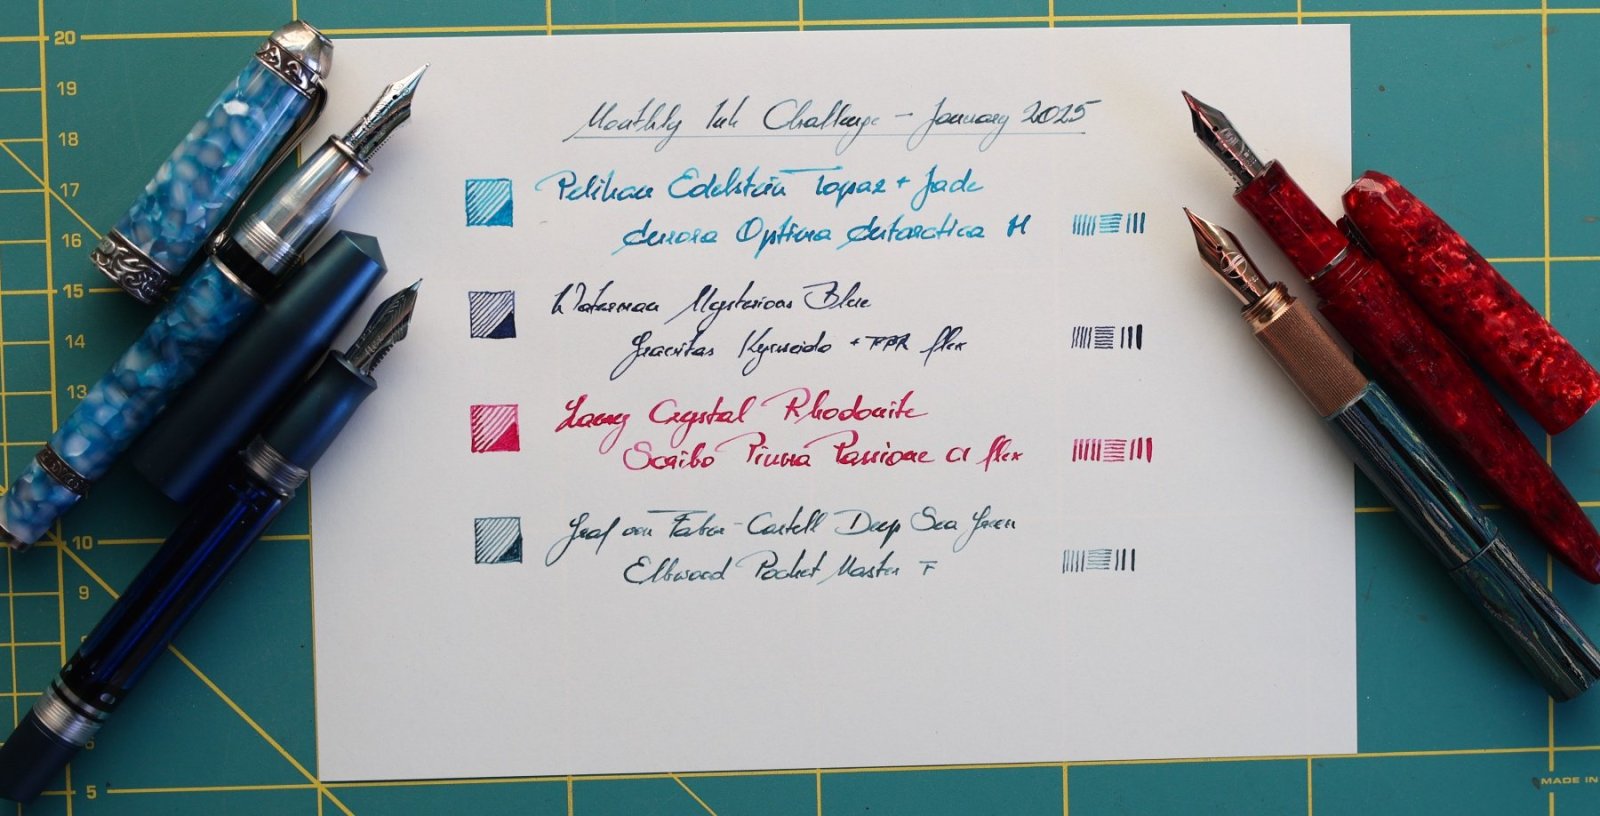 Monthly Ink Challenge - January 2025
Pelikan Edelstein Topaz + Jade
Aurora Optima Antarctica M
Waterman Mysterious Blue
Gravitas Kyuseido + FPR flex
Lamy Crystal Rhodonite
Scribo Piuma Passione CI flex
Graf von Faber-Castell Deep Sea Green
Elbwood Pocket Master F
20
19
18
17
16
15
14
13
10
9
6
5
MADE IN